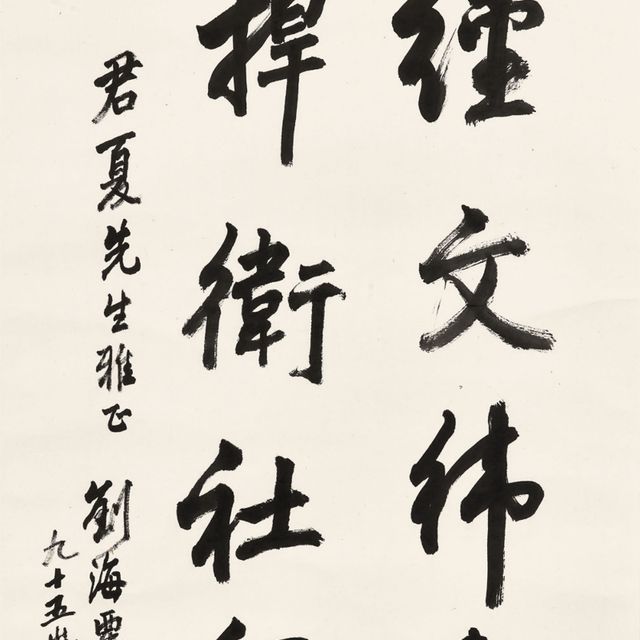 經文緯
捍衛社
君夏先生雅正 劉海粟
九十五